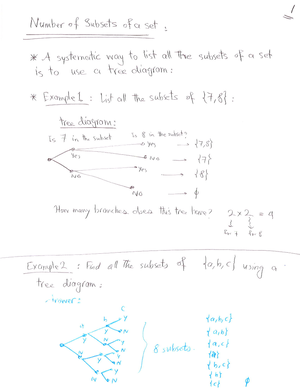 1
Number of Subsets of a set :
* A systematic way to list all the subsets of a set
is to use a tree diagram:
* Example 1 : List all the subsets of {7,8} :
tree diagram:
is 7 in the subset
is 8 in the subset?
Yes → {7,8}
Yes
No → {7}
Yes → {8}
No
No → ϕ
How many branches does this tree have? 2 × 2 = 4
for 7 for 8
Example 2 : Find all the subsets of {a,b,c} using a
tree diagram:
a b c
Y N
8 subsets
{a,b,c}
{a,b}
{a,c}
{a}
{b,c}
{b}
{c}
ϕ